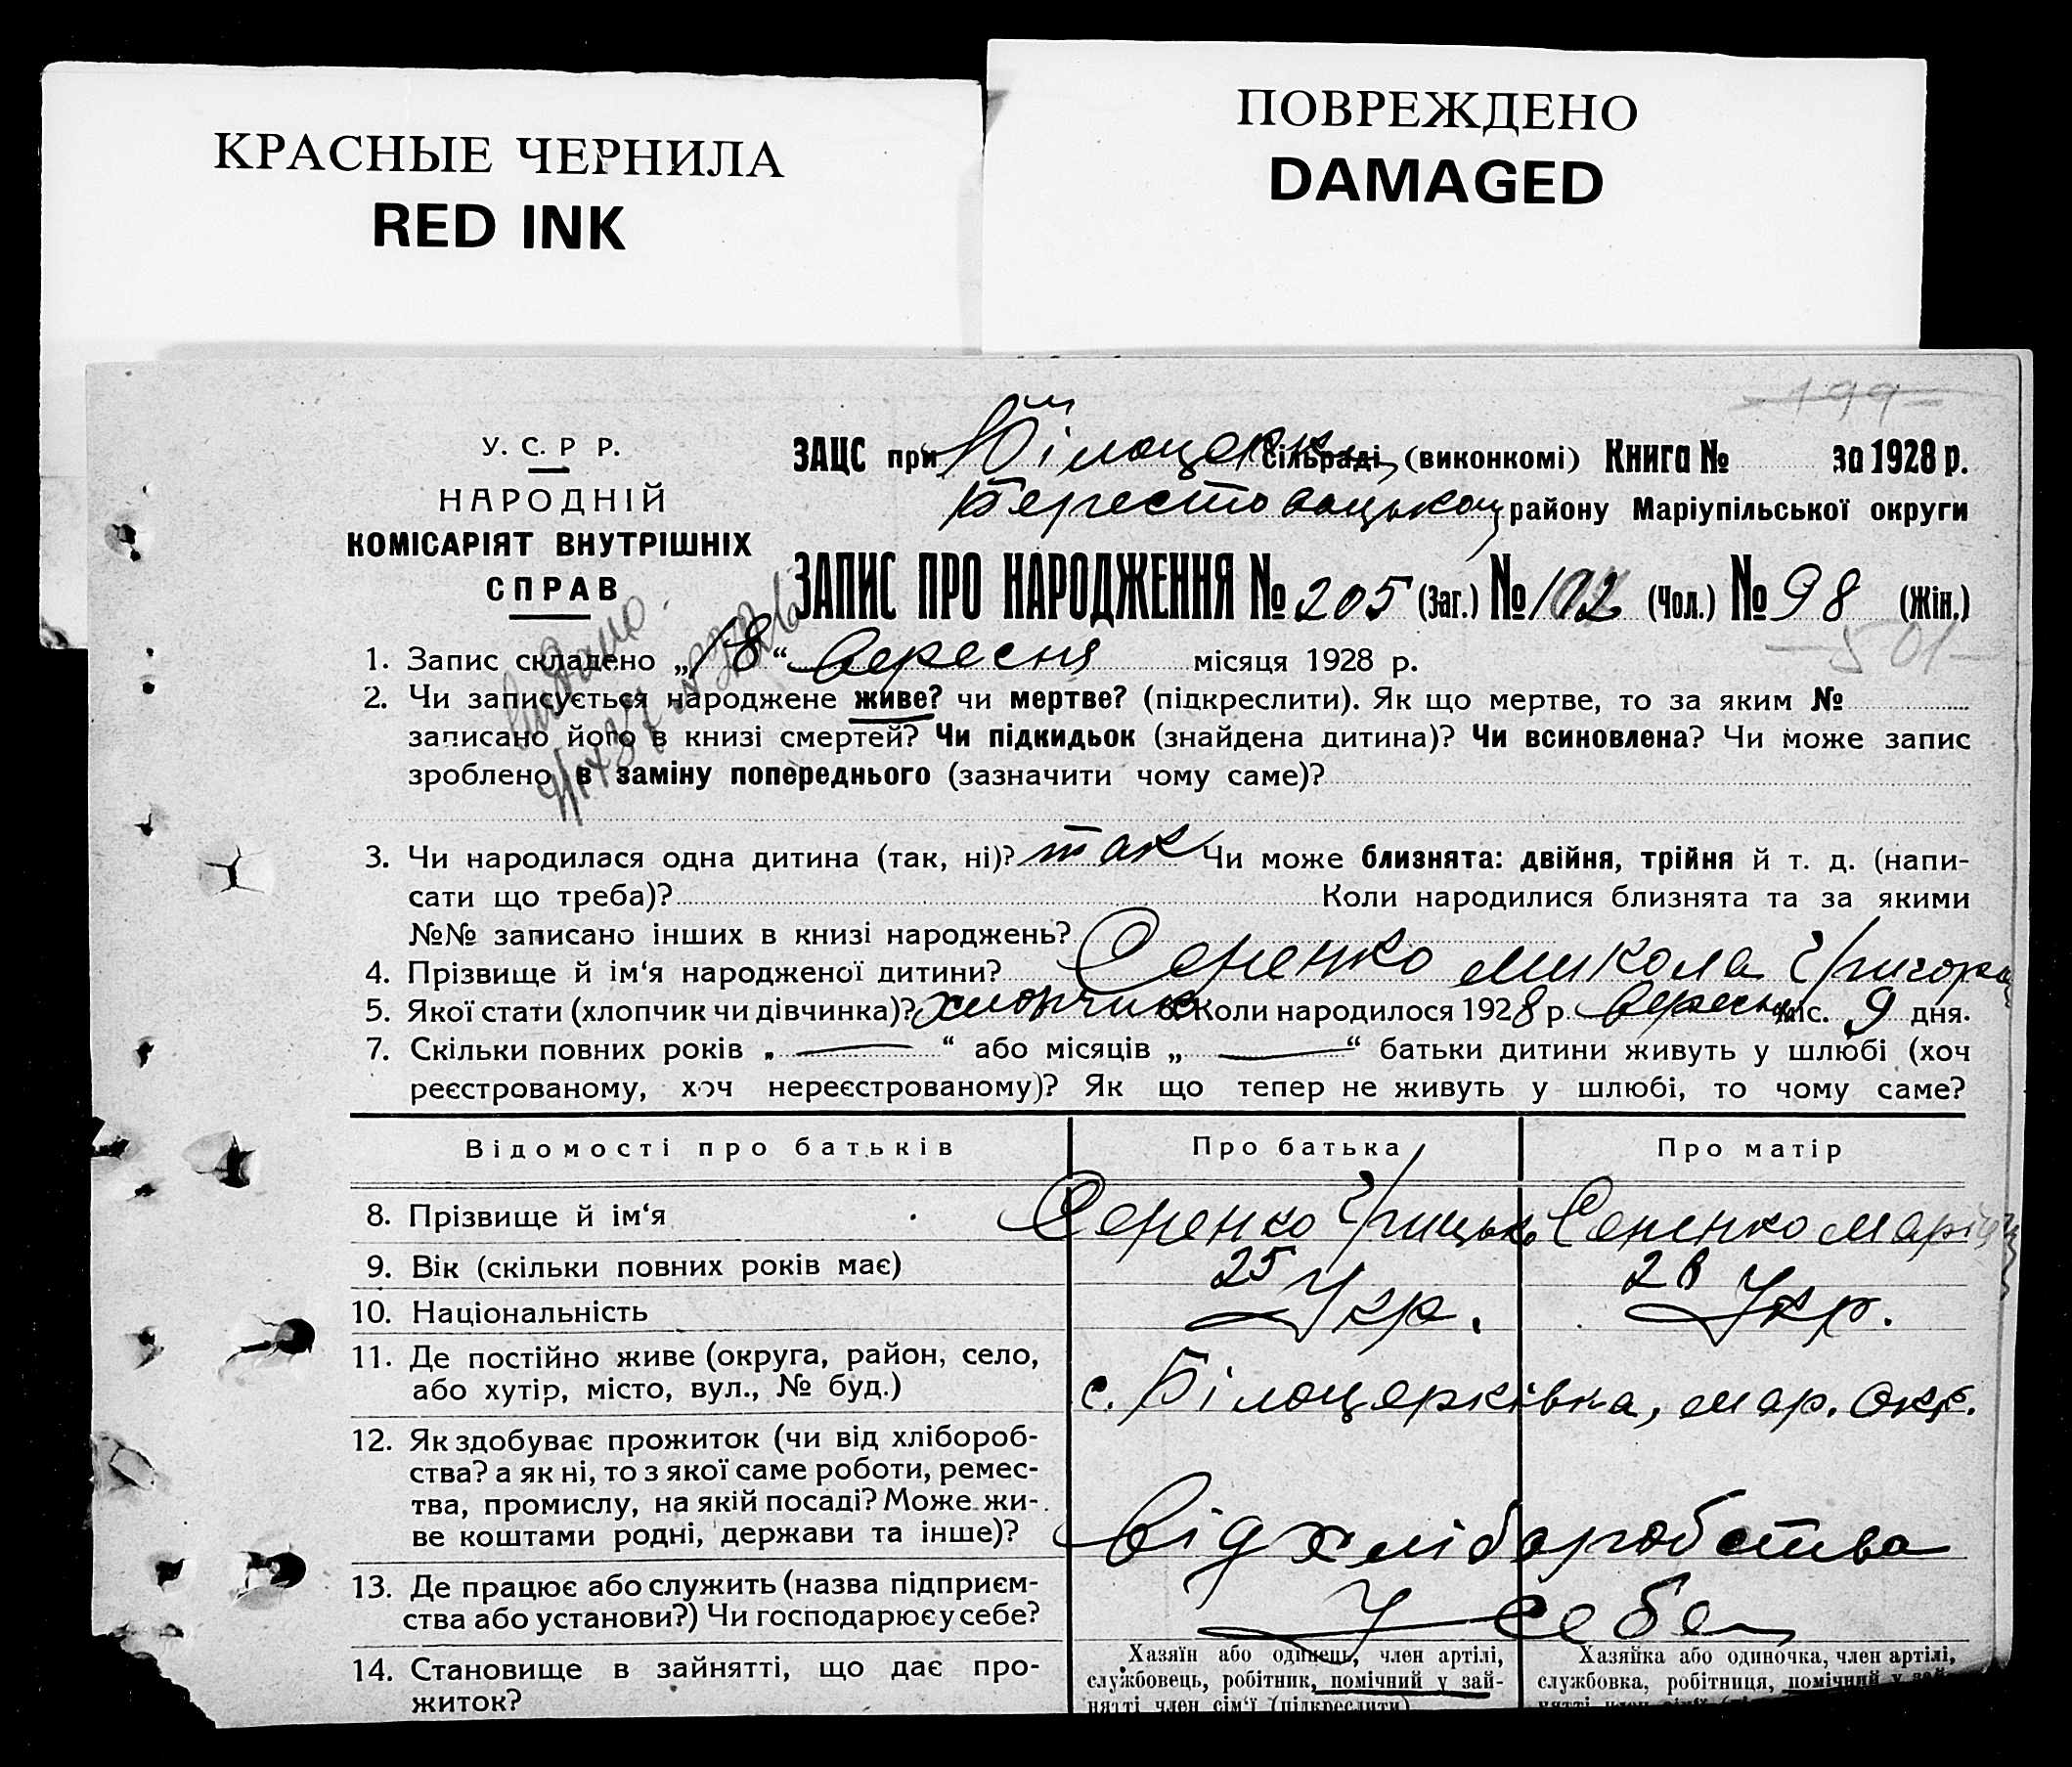 КРАСНЫЕ ЧЕРНИЛА
RED INK
ПОВРЕЖДЕНО
DAMAGED
199
У. С. Р Р.
НАРОДНІЙ
КОМІСАРІЯТ ВНУТРІШНІХ
СПРАВ
ЗАЦС при Білоцерк сільраді, (виконкомі) Книга № за 1928 р.
Берестовацькому району Маріупільської округи
ЗАПИС ПРО НАРОДЖЕННЯ № 205 (Заг.) № 102 (Чол.) № 98 (Жін.)
501
1. Запис складено „18“ Вересня місяця 1928 р.
2. Чи записується народжене живе? чи мертве? (підкреслити). Як що мертве, то за яким №
записано його в книзі смертей? Чи підкидьок (знайдена дитина)? Чи всиновлена? Чи може запис
зроблено в заміну попереднього (зазначити чому саме)?
3. Чи народилася одна дитина (так, ні)? так Чи може близнята: двійня, трійня й т. д. (напи-
сати що треба)? Коли народилися близнята та за якими
№№ записано інших в книзі народжень?
4. Прізвище й ім‘я народженої дитини? Серенко Микола Григоров
5. Якої стати (хлопчик чи дівчинка)? хлопчик Коли народилося 1928 р. Вересня міс. 9 дня.
7. Скільки повних років „ — “ або місяців „ — “ батьки дитини живуть у шлюбі (хоч
реєстрованому, хоч нереєстрованому)? Як що тепер не живуть у шлюбі, то чому саме?
Відомості про батьків Про батька Про матір
8. Прізвище й ім‘я Серенко Грицько Серенко Марія
9. Вік (скільки повних років має) 25 28
10. Національність Укр. Укр.
11. Де постійно живе (округа, район, село,
або хутір, місто, вул., № буд.) с. Білоцерківка, Мар. Окр.
12. Як здобуває прожиток (чи від хлібороб-
ства? а як ні, то з якої саме роботи, ремес-
тва, промислу, на якій посаді? Може жи-
ве коштами родні, держави та інше)? Від хліборобства
13. Де працює або служить (назва підприєм-
ства або установи?) Чи господарює у себе? У себе
14. Становище в зайнятті, що дає про-
житок?
Хазяїн або одинець, член артілі,
службовець, робітник, помічний у зай-
нятті член сім‘ї (підкреслити)
Хазяйка або одиночка, член артілі,
службовка, робітниця, помічний у зай-
нятті член сім‘ї